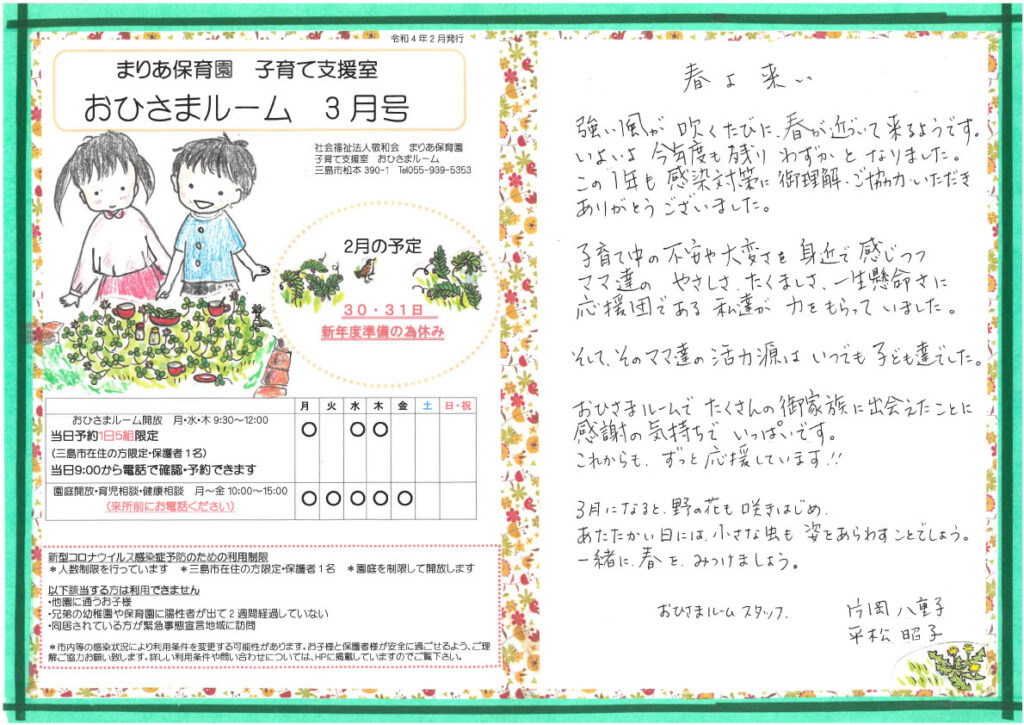 令和4年2月発行
まりあ保育園　子育て支援室
おひさまルーム　3月号
社会福祉法人敬和会　まりあ保育園
子育て支援室　おひさまルーム
三島市松本 390-1　Tel055-939-5353
2月の予定
30・31日
新年度準備の為休み
月 火 水 木 金 土 日・祝
おひさまルーム開放　月・水・木 9:30～12:00
当日予約1日5組限定
(三島市在住の方限定・保護者1名)
当日9:00から電話で確認・予約できます
○ ○ ○
園庭開放・育児相談・健康相談　月～金 10:00～15:00
(来所前にお電話ください)
○ ○ ○ ○ ○
新型コロナウイルス感染症予防のための利用制限
＊人数制限を行っています　＊三島市在住の方限定・保護者1名　＊園庭を制限して開放します
以下該当する方は利用できません
・他園に通うお子様
・兄弟の幼稚園や保育園に陽性者が出て2週間経過していない
・同居されている方が緊急事態宣言地域に訪問
＊市内等の感染状況により利用条件を変更する可能性があります。お子様と保護者様が安全に過ごせるよう、ご理
解ご協力お願い致します。詳しい利用条件や問い合わせについては、HPに掲載していますのでご覧下さい。
春よ来い
強い風が吹くたびに、春が近づいて来るようです。
いよいよ今年度も残りわずかとなりました。
この1年も感染対策に御理解・ご協力いただき
ありがとうございました。
子育て中の不安や大変さを身近で感じつつ
ママ達の やさしさ、たくましさ、一生懸命さに
応援団である私達が力をもらっていました。
そして、そのママ達の活力源はいつでも子ども達でした。
おひさまルームでたくさんの御家族に出会えたことに
感謝の気持ちでいっぱいです。
これからも、ずっと応援しています!!
3月になると、野の花も咲きはじめ、
あたたかい日には、小さな虫も姿をあらわすことでしょう。
一緒に、春を、みつけましょう。
おひさまルームスタッフ　片岡八重子
平松昭子